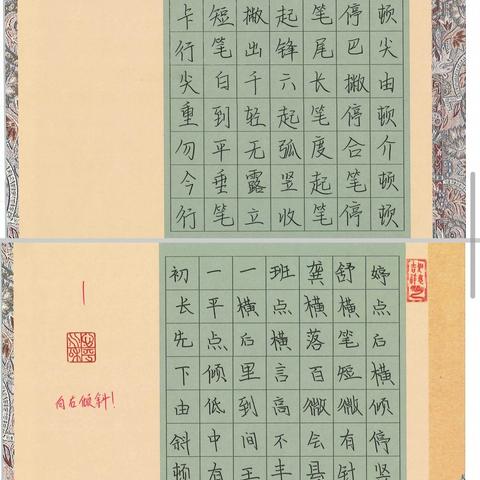 顿尖由顿介顿顿
停巴撇停合笔停
笔尾长笔度起笔
起锋六起弧竖收
撇出千轻无露立
短笔白到平垂笔
卡行尖重勿今行
婷点后横倾停竖
舒横笔短微有针
龚横落百微会县
班点横言高不丰
一横后里到间王
一平点倾低中有
初长先下由斜顿
向右倾斜!